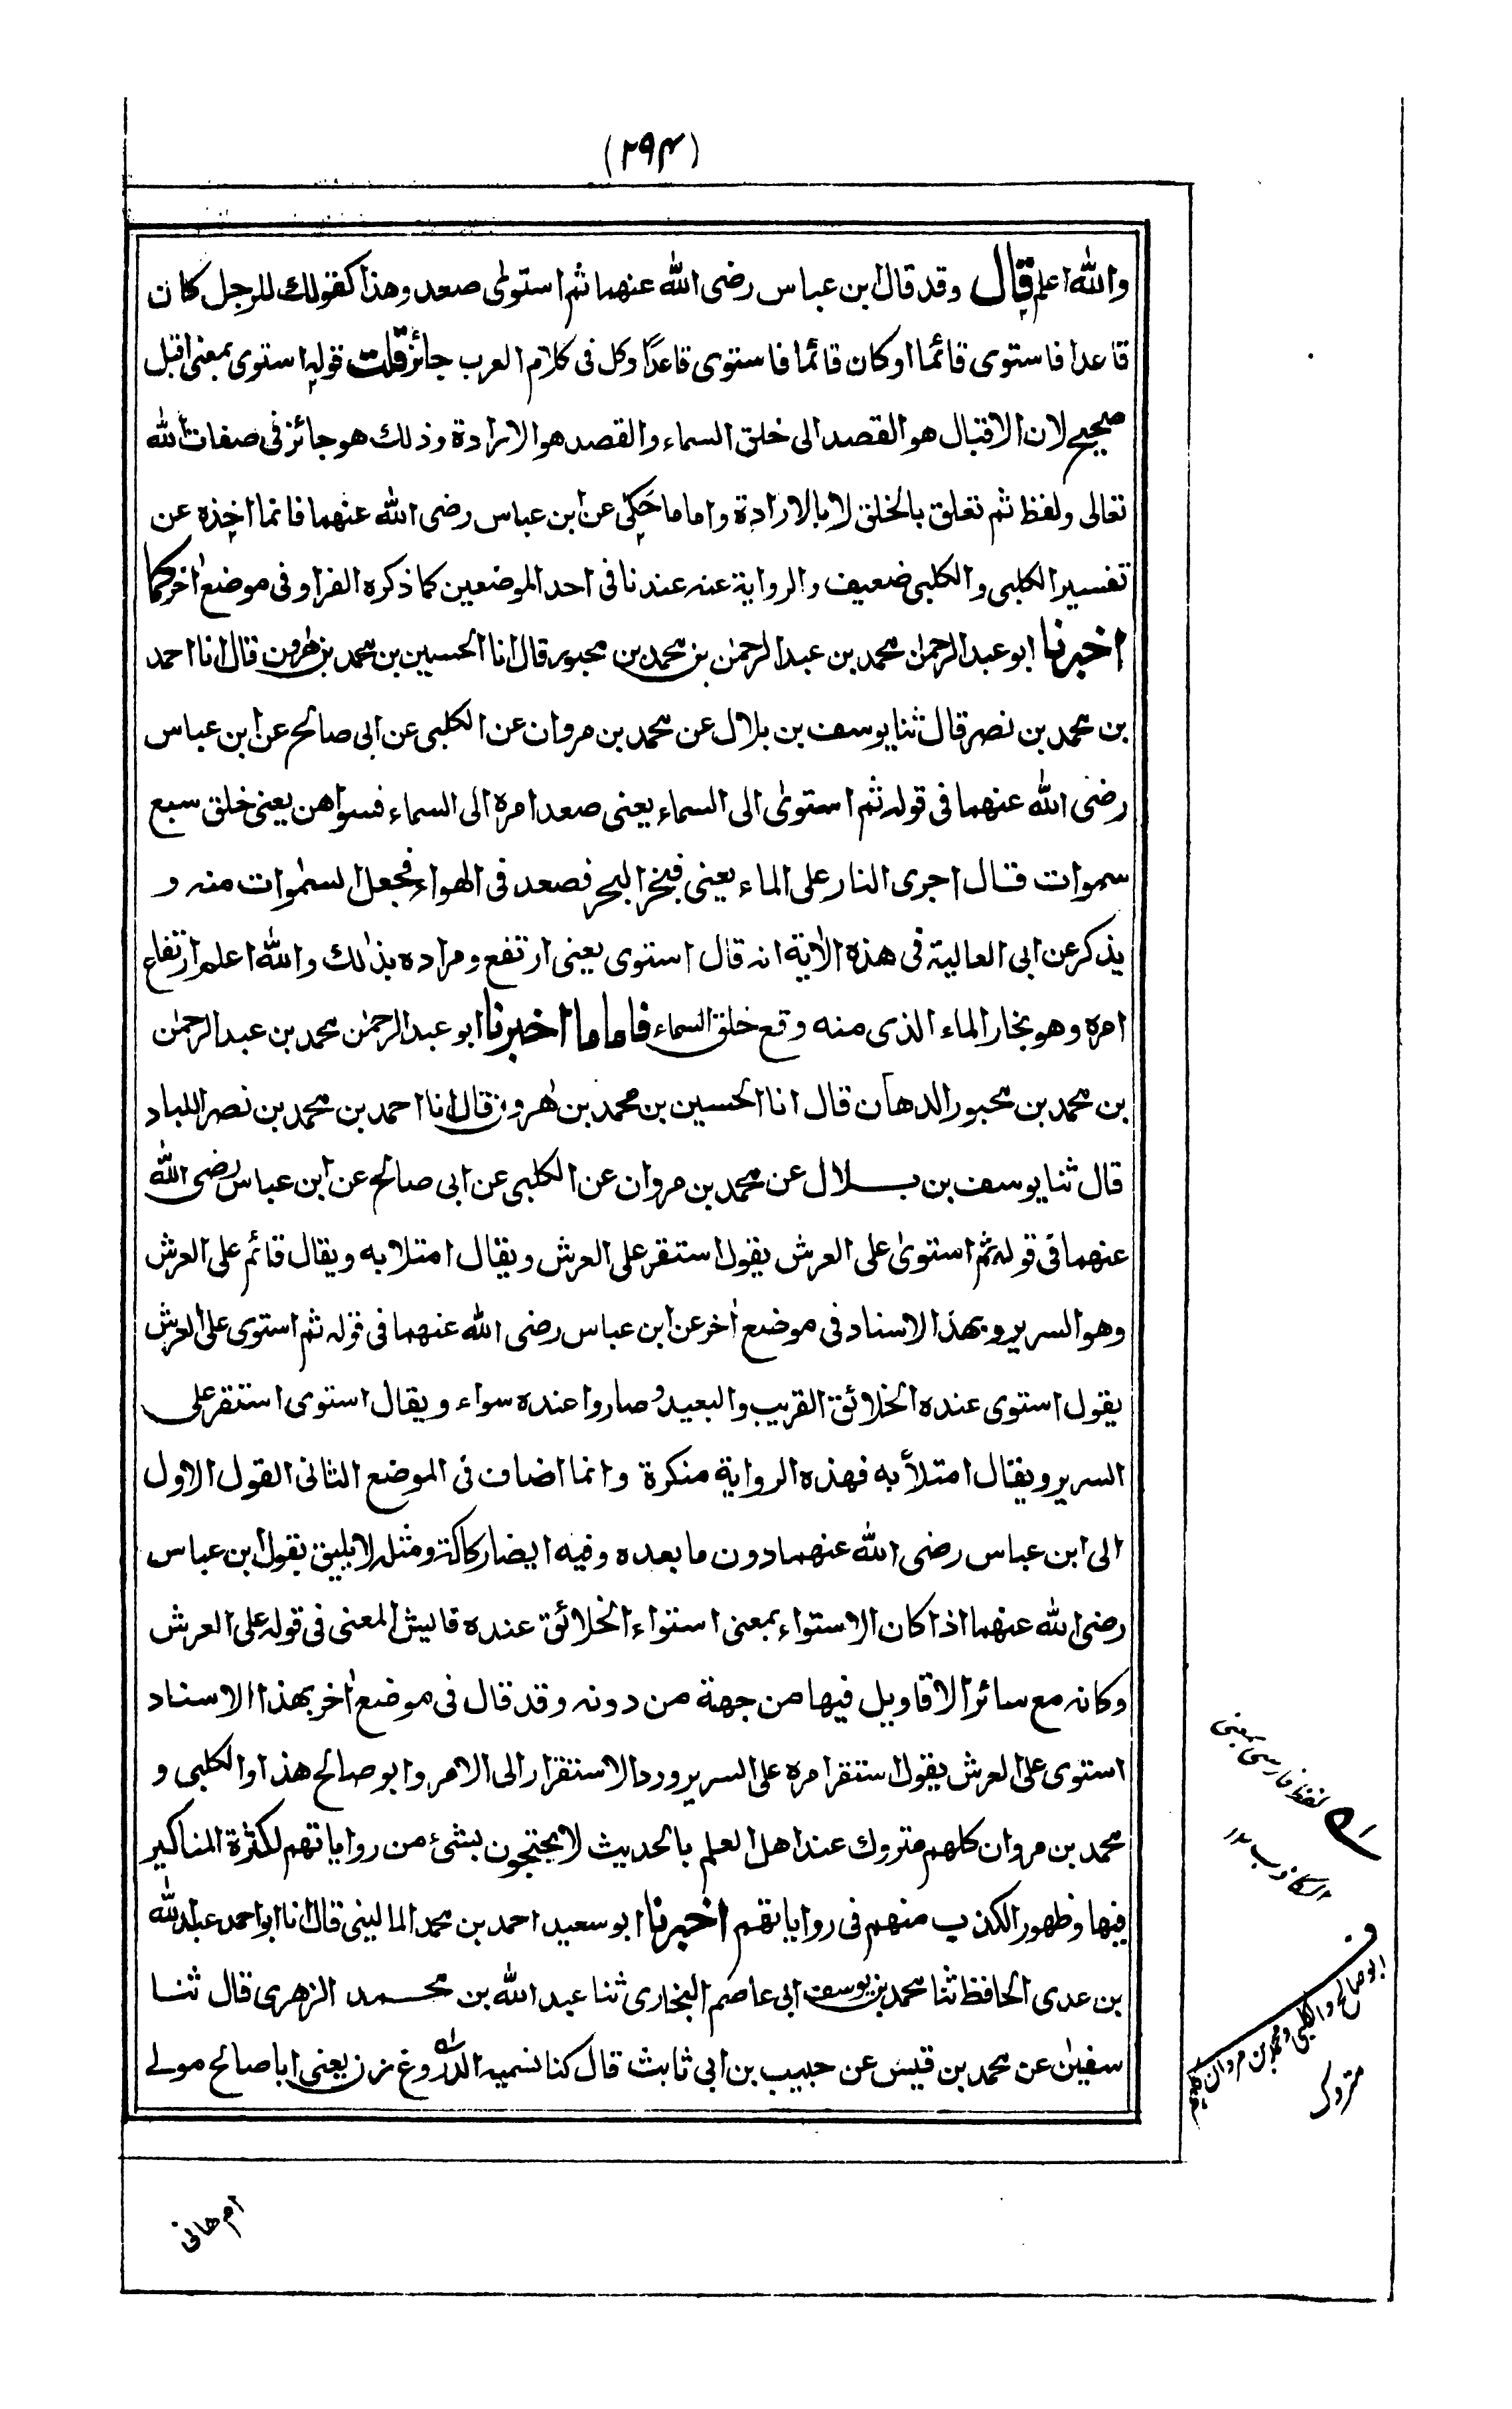 (۲۹۴)
والله اعلم قال وقد قال ابن عباس رضى الله عنهما ثم استوى صعد وهذا كقولك للرجل كان
قاعدا فاستوى قائما او كان قائما فاستوى قاعدًا وكل فى كلام العرب جائز قلت قوله استوى بمعنى اقبل
صحيح لان الاقبال هو القصد الى خلق السماء والقصد هو الارادة وذلك هو جائز فى صفات الله
تعالى ولفظ ثم تعلق بالخلق لا بالارادة واما ما حَكى عن ابن عباس رضى الله عنهما فانما اخذه عن
تفسير الكلبى والكلبى ضعيف والرواية عنه عندنا فى احد الموضعين كما ذكره الفراء وفى موضع اٰخر كما
اخبرنا ابو عبد الرحمٰن محمد بن عبد الرحمٰن بن محمد بن محبور قال انا الحسين بن محمد بن هٰرون قال انا احمد
بن محمد بن نصر قال ثنا يوسف بن بلال عن محمد بن مروان عن الكلبى عن ابى صالح عن ابن عباس
رضى الله عنهما فى قوله ثم استوىٰ الى السماء يعنى صعد امره الى السماء فسواهن يعنى خلق سبع
سموات قال اجرى النار على الماء يعنى فبخر البحر فصعد فى الهواء فجعل السمٰوات منه و
يذكر عن ابى العالية فى هذه الاٰية انه قال استوى يعنى ارتفع ومراده بذٰلك والله اعلم ارتفاع
امره وهو بخار الماء الذى منه وقع خلق السماء فاما ما اخبرنا ابو عبد الرحمٰن محمد بن عبد الرحمٰن
بن محمد بن محبور الدهان قال انا الحسين بن محمد بن هٰرون قال انا احمد بن محمد بن نصر اللباد
قال ثنا يوسف بن بلال عن محمد بن مروان عن الكلبى عن ابى صالح عن ابن عباس رضى الله
عنهما فى قوله ثم استوىٰ على العرش يقول استقر على العرش ويقال امتلا به ويقال قائم على العرش
وهو السرير وبهذا الاسناد فى موضع اٰخر عن ابن عباس رضى الله عنهما فى قوله ثم استوى على العرش
يقول استوى عنده الخلائق القريب والبعيد وصاروا عنده سواء ويقال استوى استقر على
السرير ويقال امتلأ به فهذه الرواية منكرة وانما اضاف فى الموضع الثانى القول الاول
الى ابن عباس رضى الله عنهما دون ما بعده وفيه ايضا ركاكة ومثله لا يليق بقول ابن عباس
رضى الله عنهما اذا كان الاستواء بمعنى استواء الخلائق عنده فاليش المعنى فى قوله على العرش
وكانه مع سائر الاقاويل فيها من جهة من دونه وقد قال فى موضع اٰخر بهذا الاسناد
استوى على العرش يقول استقر امره على السرير ورد الاستقرار الى الامر وابو صالح هذا والكلبى و
محمد بن مروان كلهم متروك عند اهل العلم بالحديث لا يحتجون بشئ من رواياتهم لكثرة المناكير
فيها وظهور الكذب منهم فى رواياتهم اخبرنا ابو سعيد احمد بن محمد المالينى قال انا ابو احمد عبد الله
بن عدى الحافظ ثنا محمد بن يوسف ابى عاصم البخارى ثنا عبد الله بن محمد الزهرى قال ثنا
سفيٰن عن محمد بن قيس عن حبيب بن ابى ثابت قال كنا نسميه الدروغ زن يعنى ابا صالح مولى
ام هانى
لفظ فارسى بمعنى
الكاذب ۱۲
ف
ابو صالح والكلبى ومحمد بن مروان كلهم
متروك